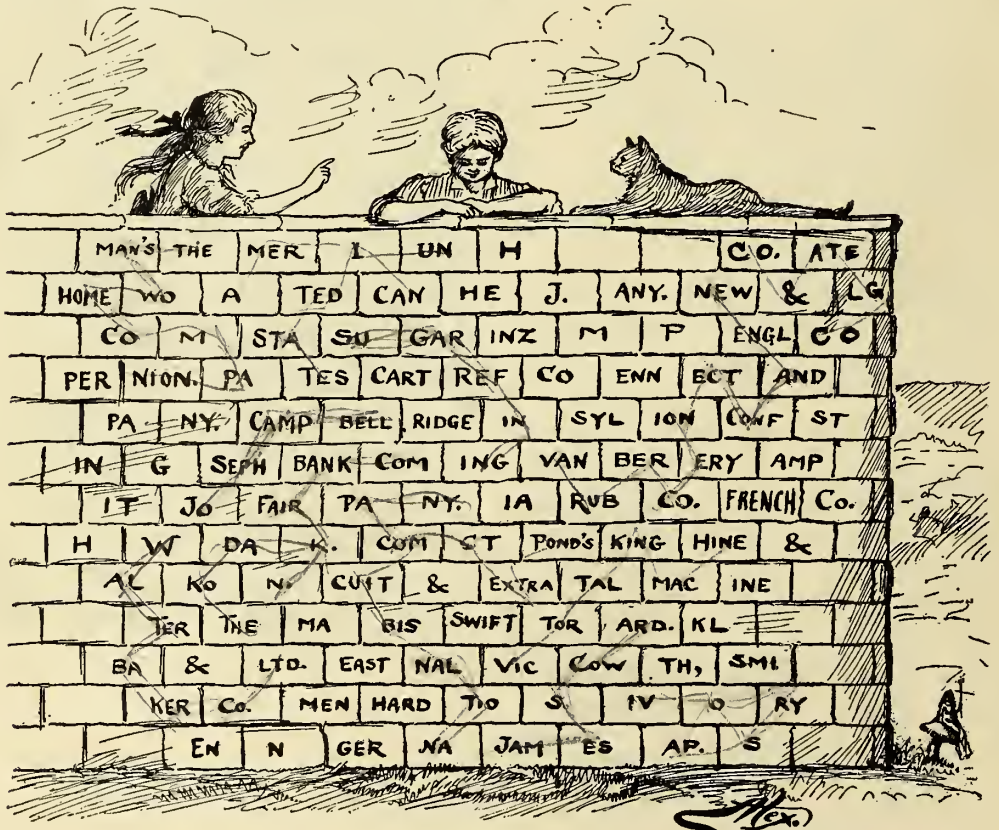 MAN'S THE MER I UN H CO. ATE
HOME WO A TED CAN HE J. ANY. NEW & LG
CO M STA SU GAR INZ M P ENGL CO
PER NION. PA TES CART REF CO ENN ECT AND
PA NY. CAMP BELL RIDGE IN SYL ION CONF ST
IN G SEPH BANK COM ING VAN BER ERY AMP
IT JO FAIR PA NY. IA RUB CO. FRENCH CO.
H W DA K. COM ST POND'S KING HINE &
AL KO N. CUIT & EXTRA TAL MAC INE
TER THE MA BIS SWIFT TOR ARD. KL
BA & LTD. EAST NAL VIC COW TH, SMI
KER CO. MEN HARD TIO S IV O RY
EN N GER NA JAM ES AP. S